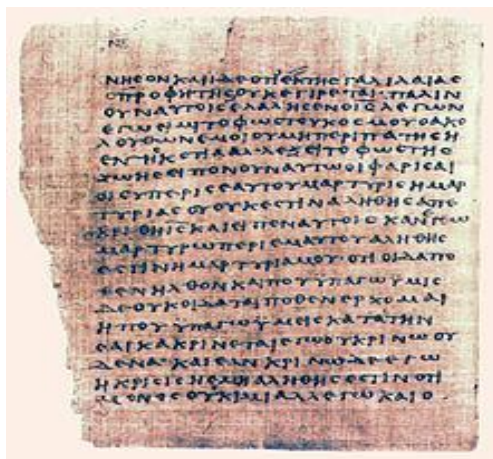 ΝΗϹΟΝΚΑΙΙΔΕΟΤΙΕΚΤΗϹΓΑΛΙΛΑΙΑϹ
ΟΠΡΟΦΗΤΗϹΟΥΚΕΓΙΡΕΤΑΙ·ΠΑΛΙΝ
ΟΥΝΑΥΤΟΙϹΕΛΑΛΗϹΕΝΟΙϹΛΕΓΩΝ
ΕΓΩΕΙΜΙΤΟΦΩϹΤΟΥΚΟϹΜΟΥΟΑΚΟ
ΛΟΥΘΩΝΕΜΟΙΟΥΜΗΠΕΡΙΠΑΤΗϹΗ
ΕΝΤΗϹΚΟΤΙΑΑΛΛΕΞΕΙΤΟΦΩϹΤΗϹ
ΖΩΗϹΕΙΠΟΝΟΥΝΑΥΤΩΟΙΦΑΡΙϹΑΙ
ΟΙϹΥΠΕΡΙϹΕΑΥΤΟΥΜΑΡΤΥΡΙϹΗΜΑΡ
ΤΥΡΙΑϹΟΥΟΥΚΕϹΤΙΝΑΛΗΘΗϹΑΠΕ
ΚΡΙΘΗΙϹΚΑΙΕΙΠΕΝΑΥΤΟΙϹΚΑΝΕΓΩ
ΜΑΡΤΥΡΩΠΕΡΙΕΜΑΥΤΟΥΑΛΗΘΗϹ
ΕϹΤΙΝΗΜΑΡΤΥΡΙΑΜΟΥΟΤΙΟΙΔΑΠΟ
ΘΕΝΗΛΘΟΝΚΑΙΠΟΥΥΠΑΓΩΥΜΙϹ
ΔΕΟΥΚΟΙΔΑΤΑΙΠΟΘΕΝΕΡΧΟΜΑΙ
ΗΠΟΥΥΠΑΓΩΥΜΕΙϹΚΑΤΑΤΗΝ
ϹΑΡΚΑΚΡΙΝΕΤΑΙΕΓΩΟΥΚΡΙΝΩΟΥ
ΔΕΝΑ·ΚΑΙΕΑΝΚΡΙΝΩΔΕΕΓΩ
ΗΚΡΙϹΙϹΗΕΜΗΑΛΗΘΗϹΕϹΤΙΝΟΤΙ
ΜΟΝΟϹΟΥΚΙΜΙΑΛΛΕΓΩΚΑΙΟ·